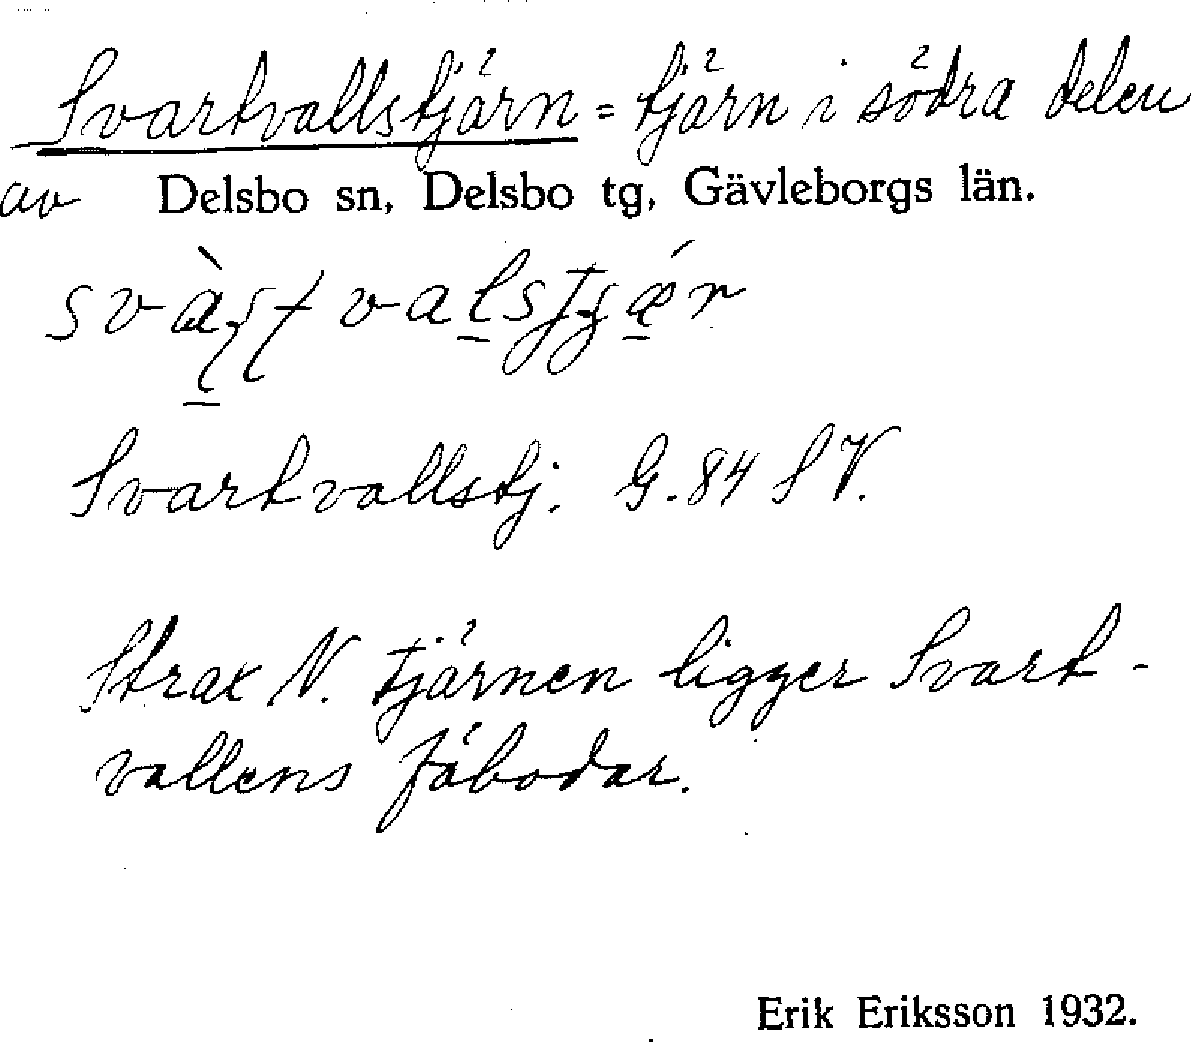 Svartvallstjärn = tjärn i södra delen
av Delsbo sn, Delsbo tg, Gävleborgs län.
Svartvallstj. G. 84 SV.
Strax N. tjärnen ligger Svart-
vallens fäbodar.
Erik Eriksson 1932.